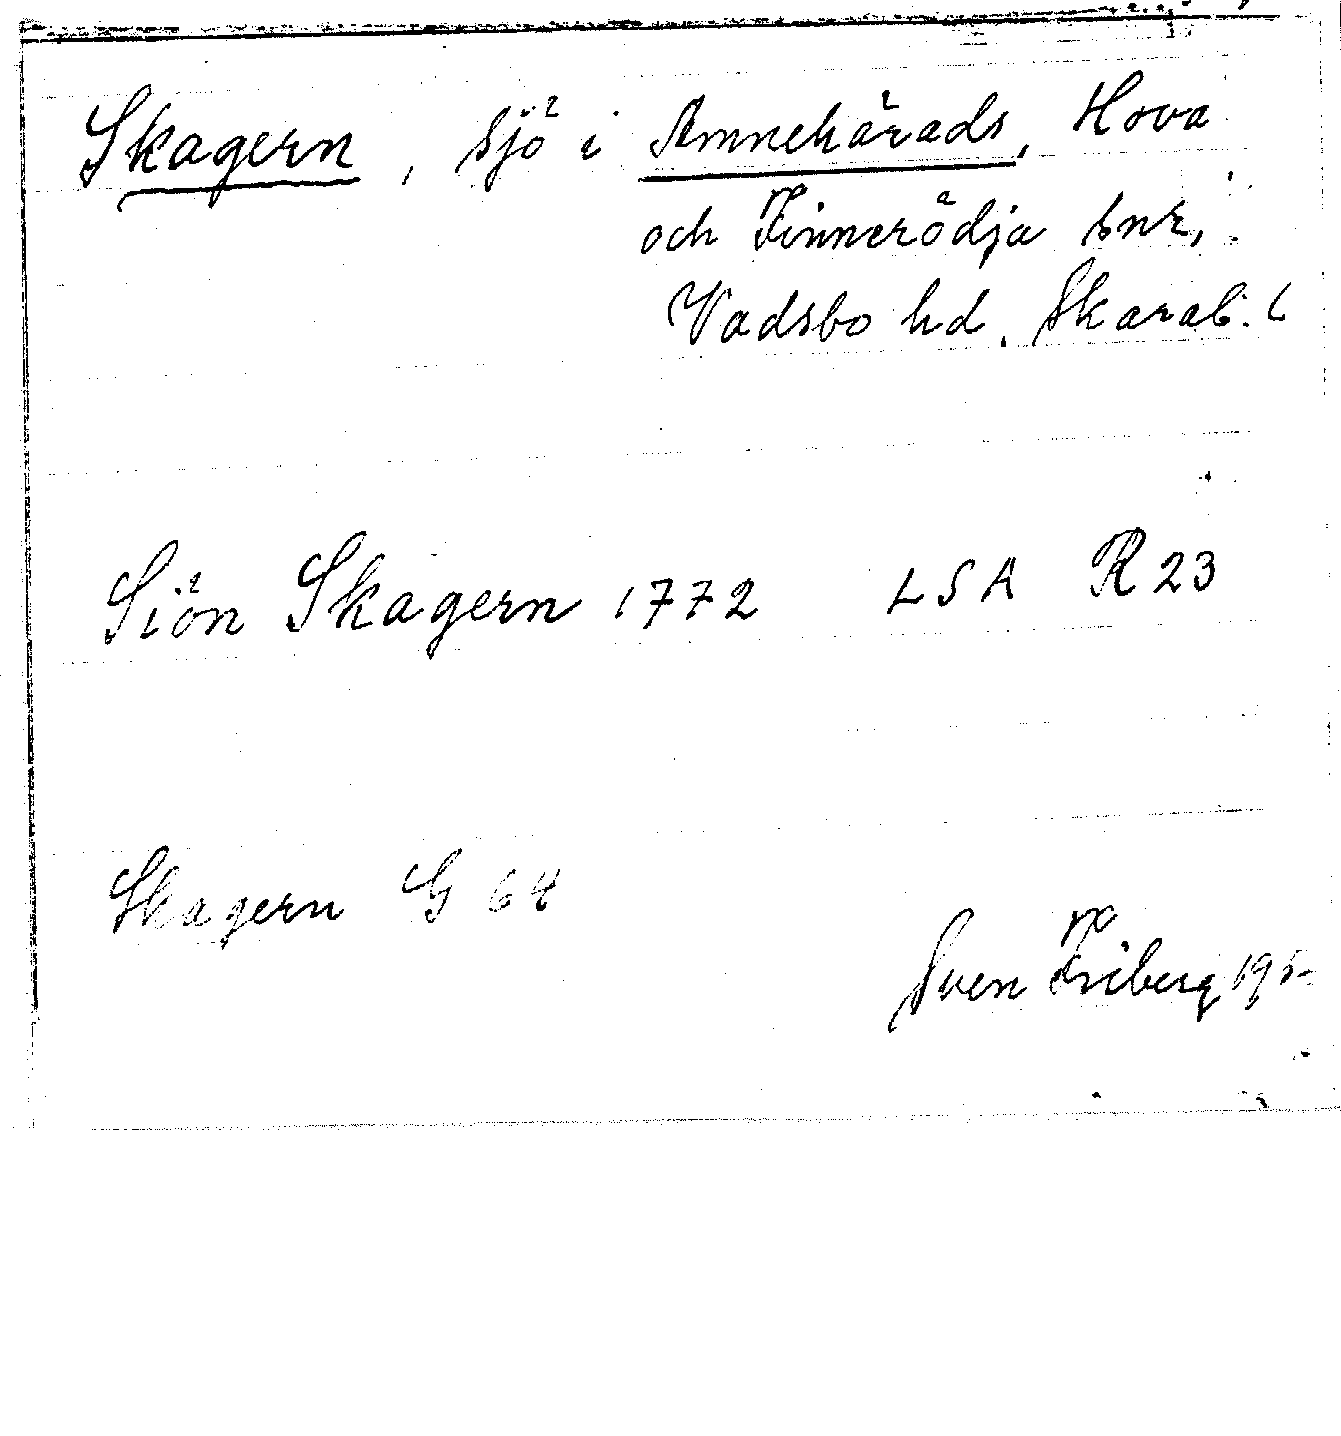 Skagern, sjö i Amnehärads, Hova
och Finnerödja snr,
Vadsbo hd. Skarab. l
Siön Skagern 1772 LSA R 23
Skagern G 64
Sven Friberg